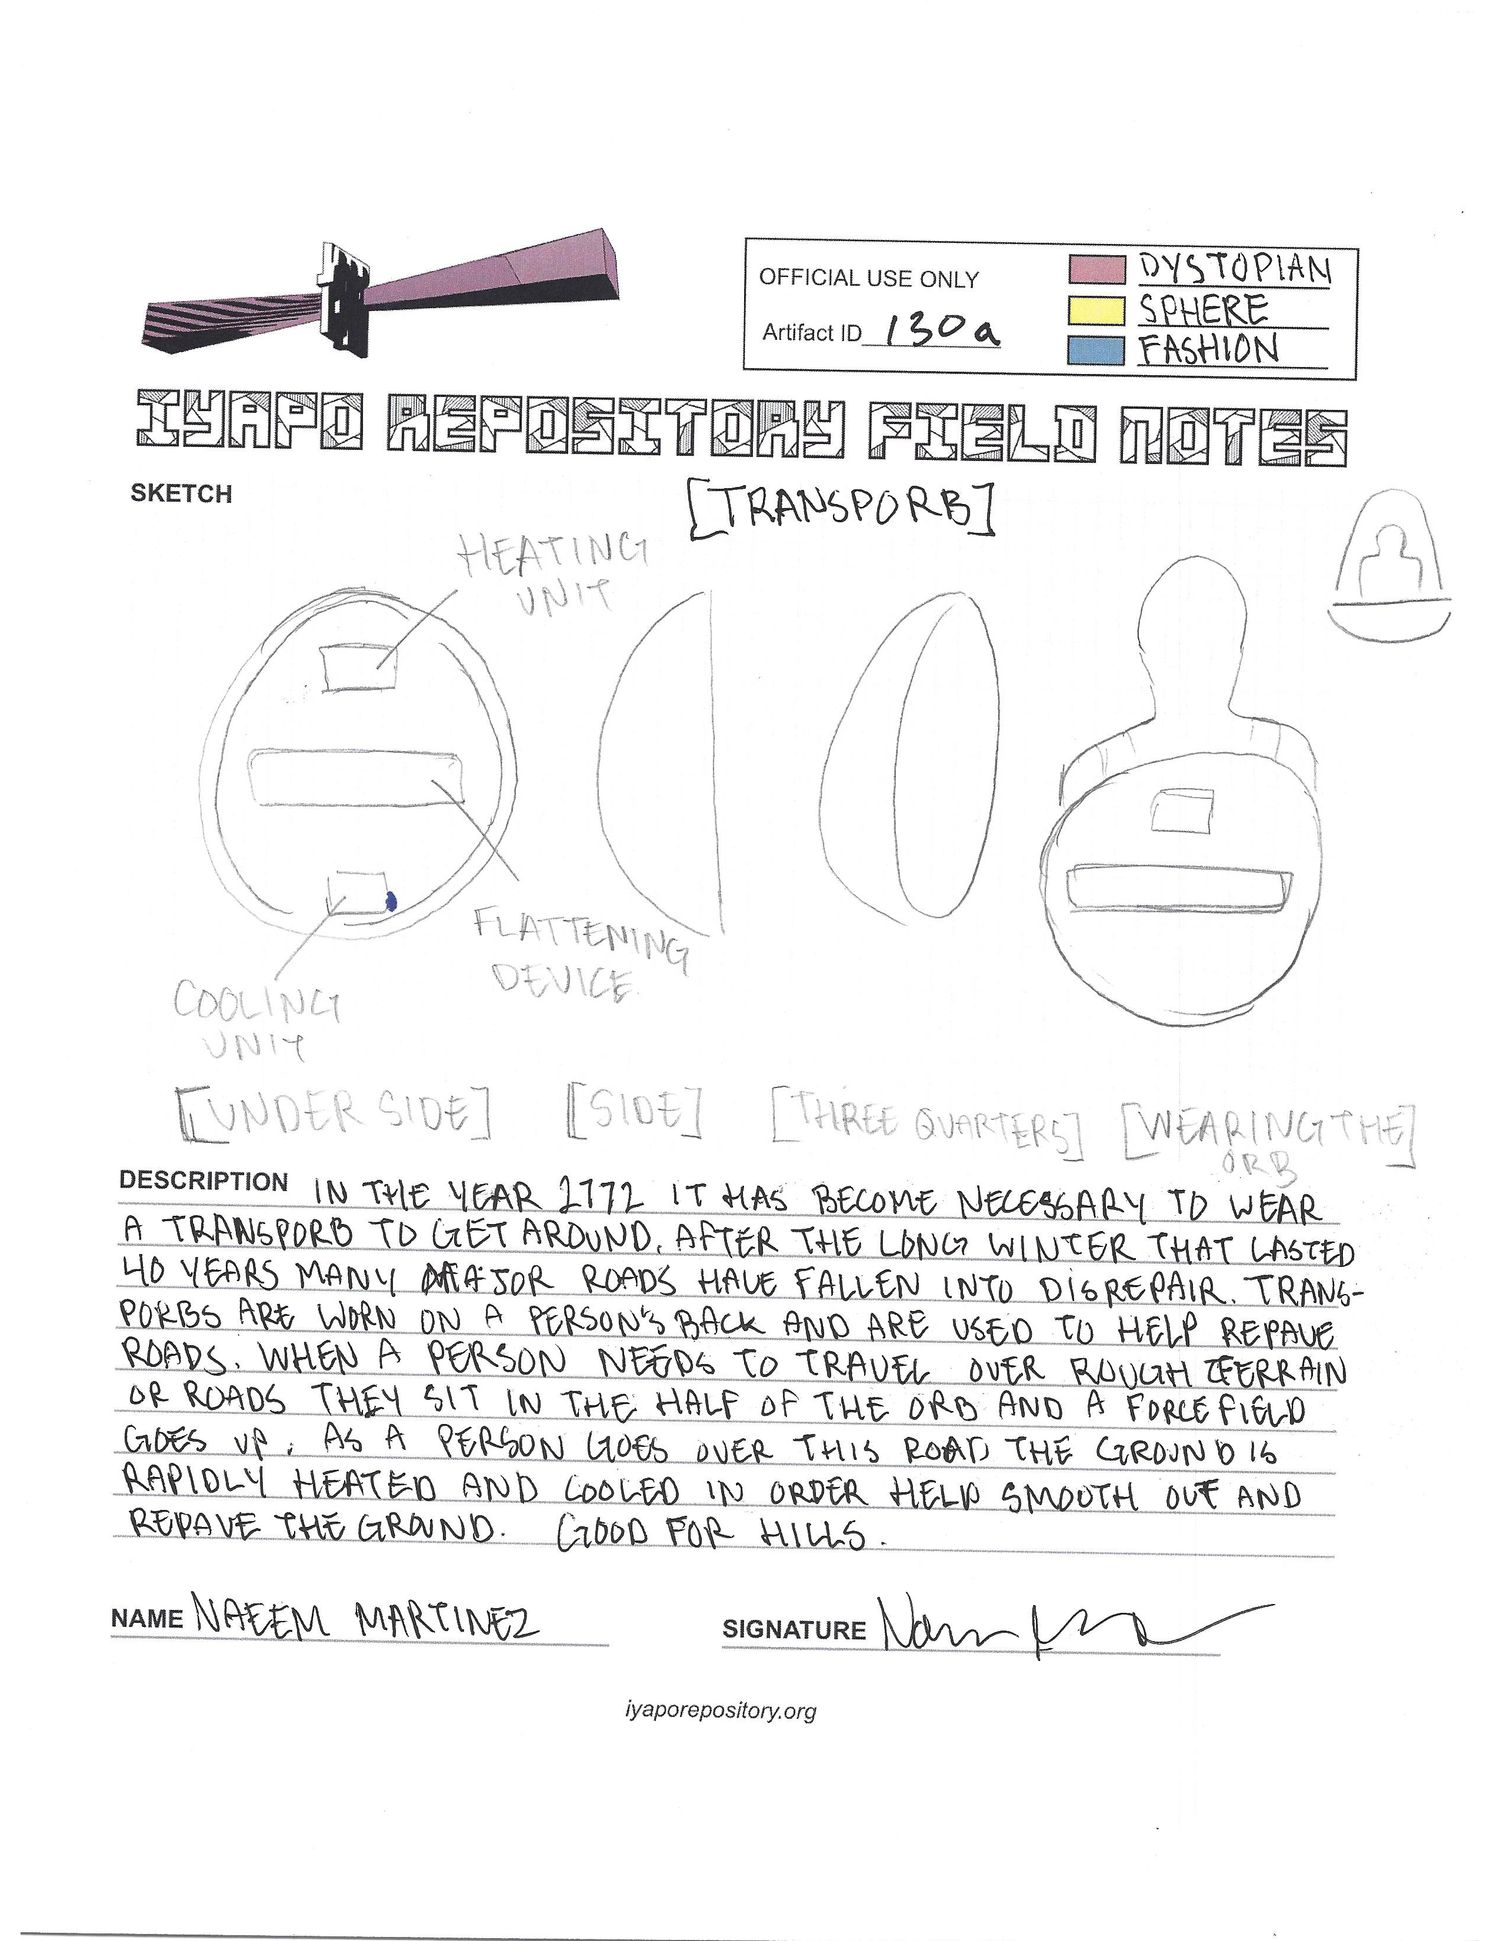 OFFICIAL USE ONLY
Artifact ID 130a
DYSTOPIAN
SPHERE
FASHION
IYAPO REPOSITORY FIELD NOTES
SKETCH
[TRANSPORB]
HEATING
UNIT
FLATTENING
DEVICE
COOLING
UNIT
[UNDER SIDE] [SIDE] [THREE QUARTERS] [WEARING THE]
ORB
DESCRIPTION IN THE YEAR 2772 IT HAS BECOME NECESSARY TO WEAR
A TRANSPORB TO GET AROUND. AFTER THE LONG WINTER THAT LASTED
40 YEARS MANY MAJOR ROADS HAVE FALLEN INTO DISREPAIR. TRANS-
PORBS ARE WORN ON A PERSON'S BACK AND ARE USED TO HELP REPAVE
ROADS. WHEN A PERSON NEEDS TO TRAVEL OVER ROUGH TERRAIN
OR ROADS THEY SIT IN THE HALF OF THE ORB AND A FORCE FIELD
GOES UP. AS A PERSON GOES OVER THIS ROAD THE GROUND IS
RAPIDLY HEATED AND COOLED IN ORDER HELP SMOOTH OUT AND
REPAVE THE GROUND. GOOD FOR HILLS.
NAME NAEEM MARTINEZ
SIGNATURE
iyaporepository.org